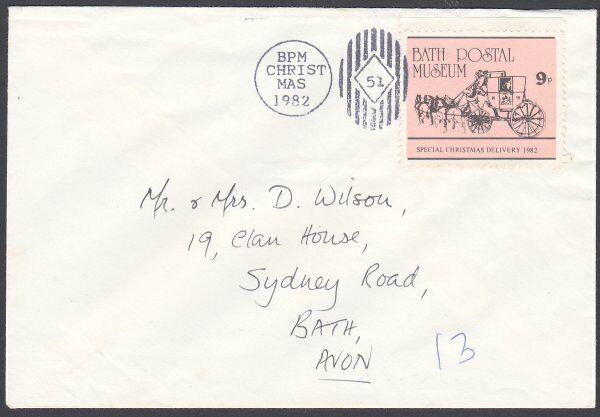 BPM
CHRIST
MAS
1982
51
BATH POSTAL
MUSEUM
9p
SPECIAL CHRISTMAS DELIVERY 1982
Mr. & Mrs. D. Wilson,
19, Clan House,
Sydney Road,
BATH,
AVON
13